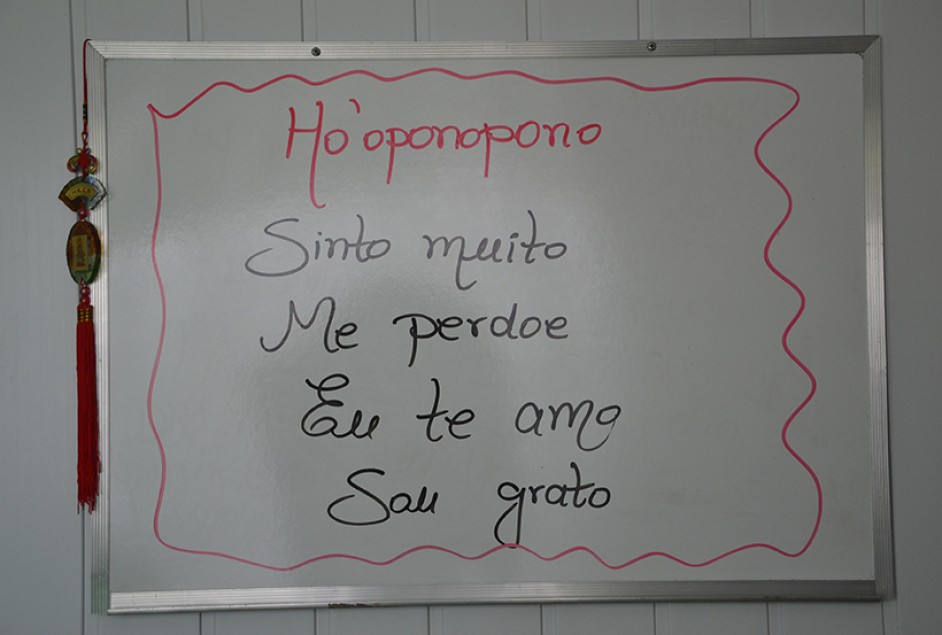 Ho'oponopono
Sinto muito
Me perdoe
Eu te amo
Sou grato